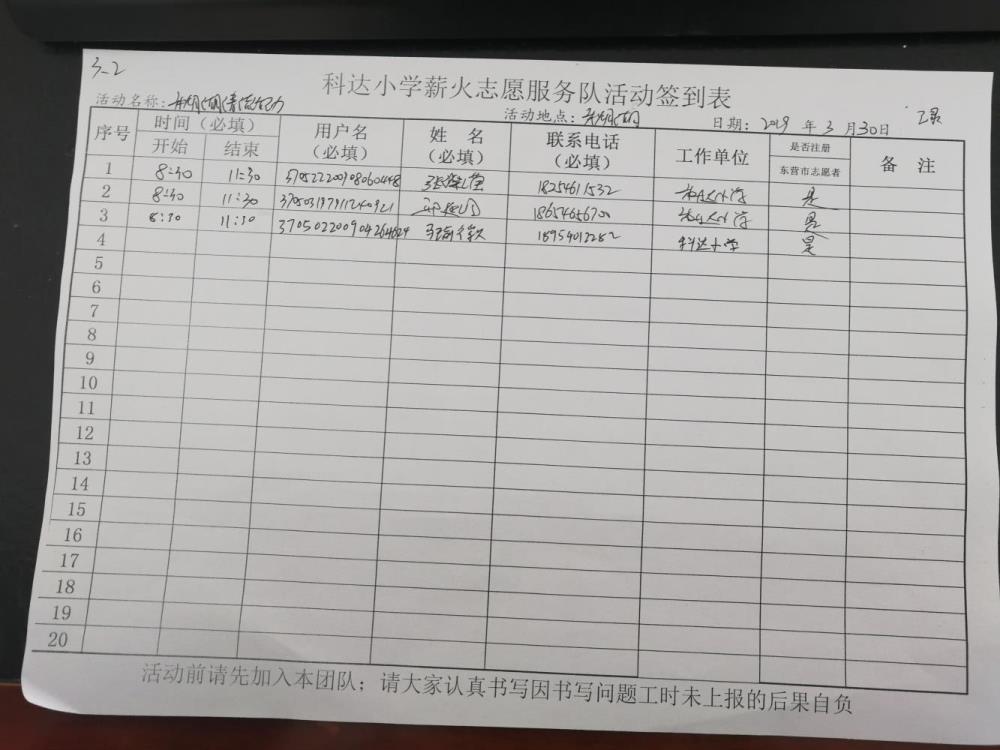 3-2
科达小学薪火志愿服务队活动签到表
活动名称： 活动地点： 日期：2019 年 3 月 30 日
序号 时间（必填） 用户名（必填） 姓 名（必填） 联系电话（必填） 工作单位 是否注册东营市志愿者 备 注
开始 结束
1 8:30 11:30 18254611532 科达小学 是
2 8:30 11:30 18654656700 科达小学 是
3 8:30 11:30 370502200904264624 18954012282 科达小学 是
4
5
6
7
8
9
10
11
12
13
14
15
16
17
18
19
20
活动前请先加入本团队；请大家认真书写因书写问题工时未上报的后果自负